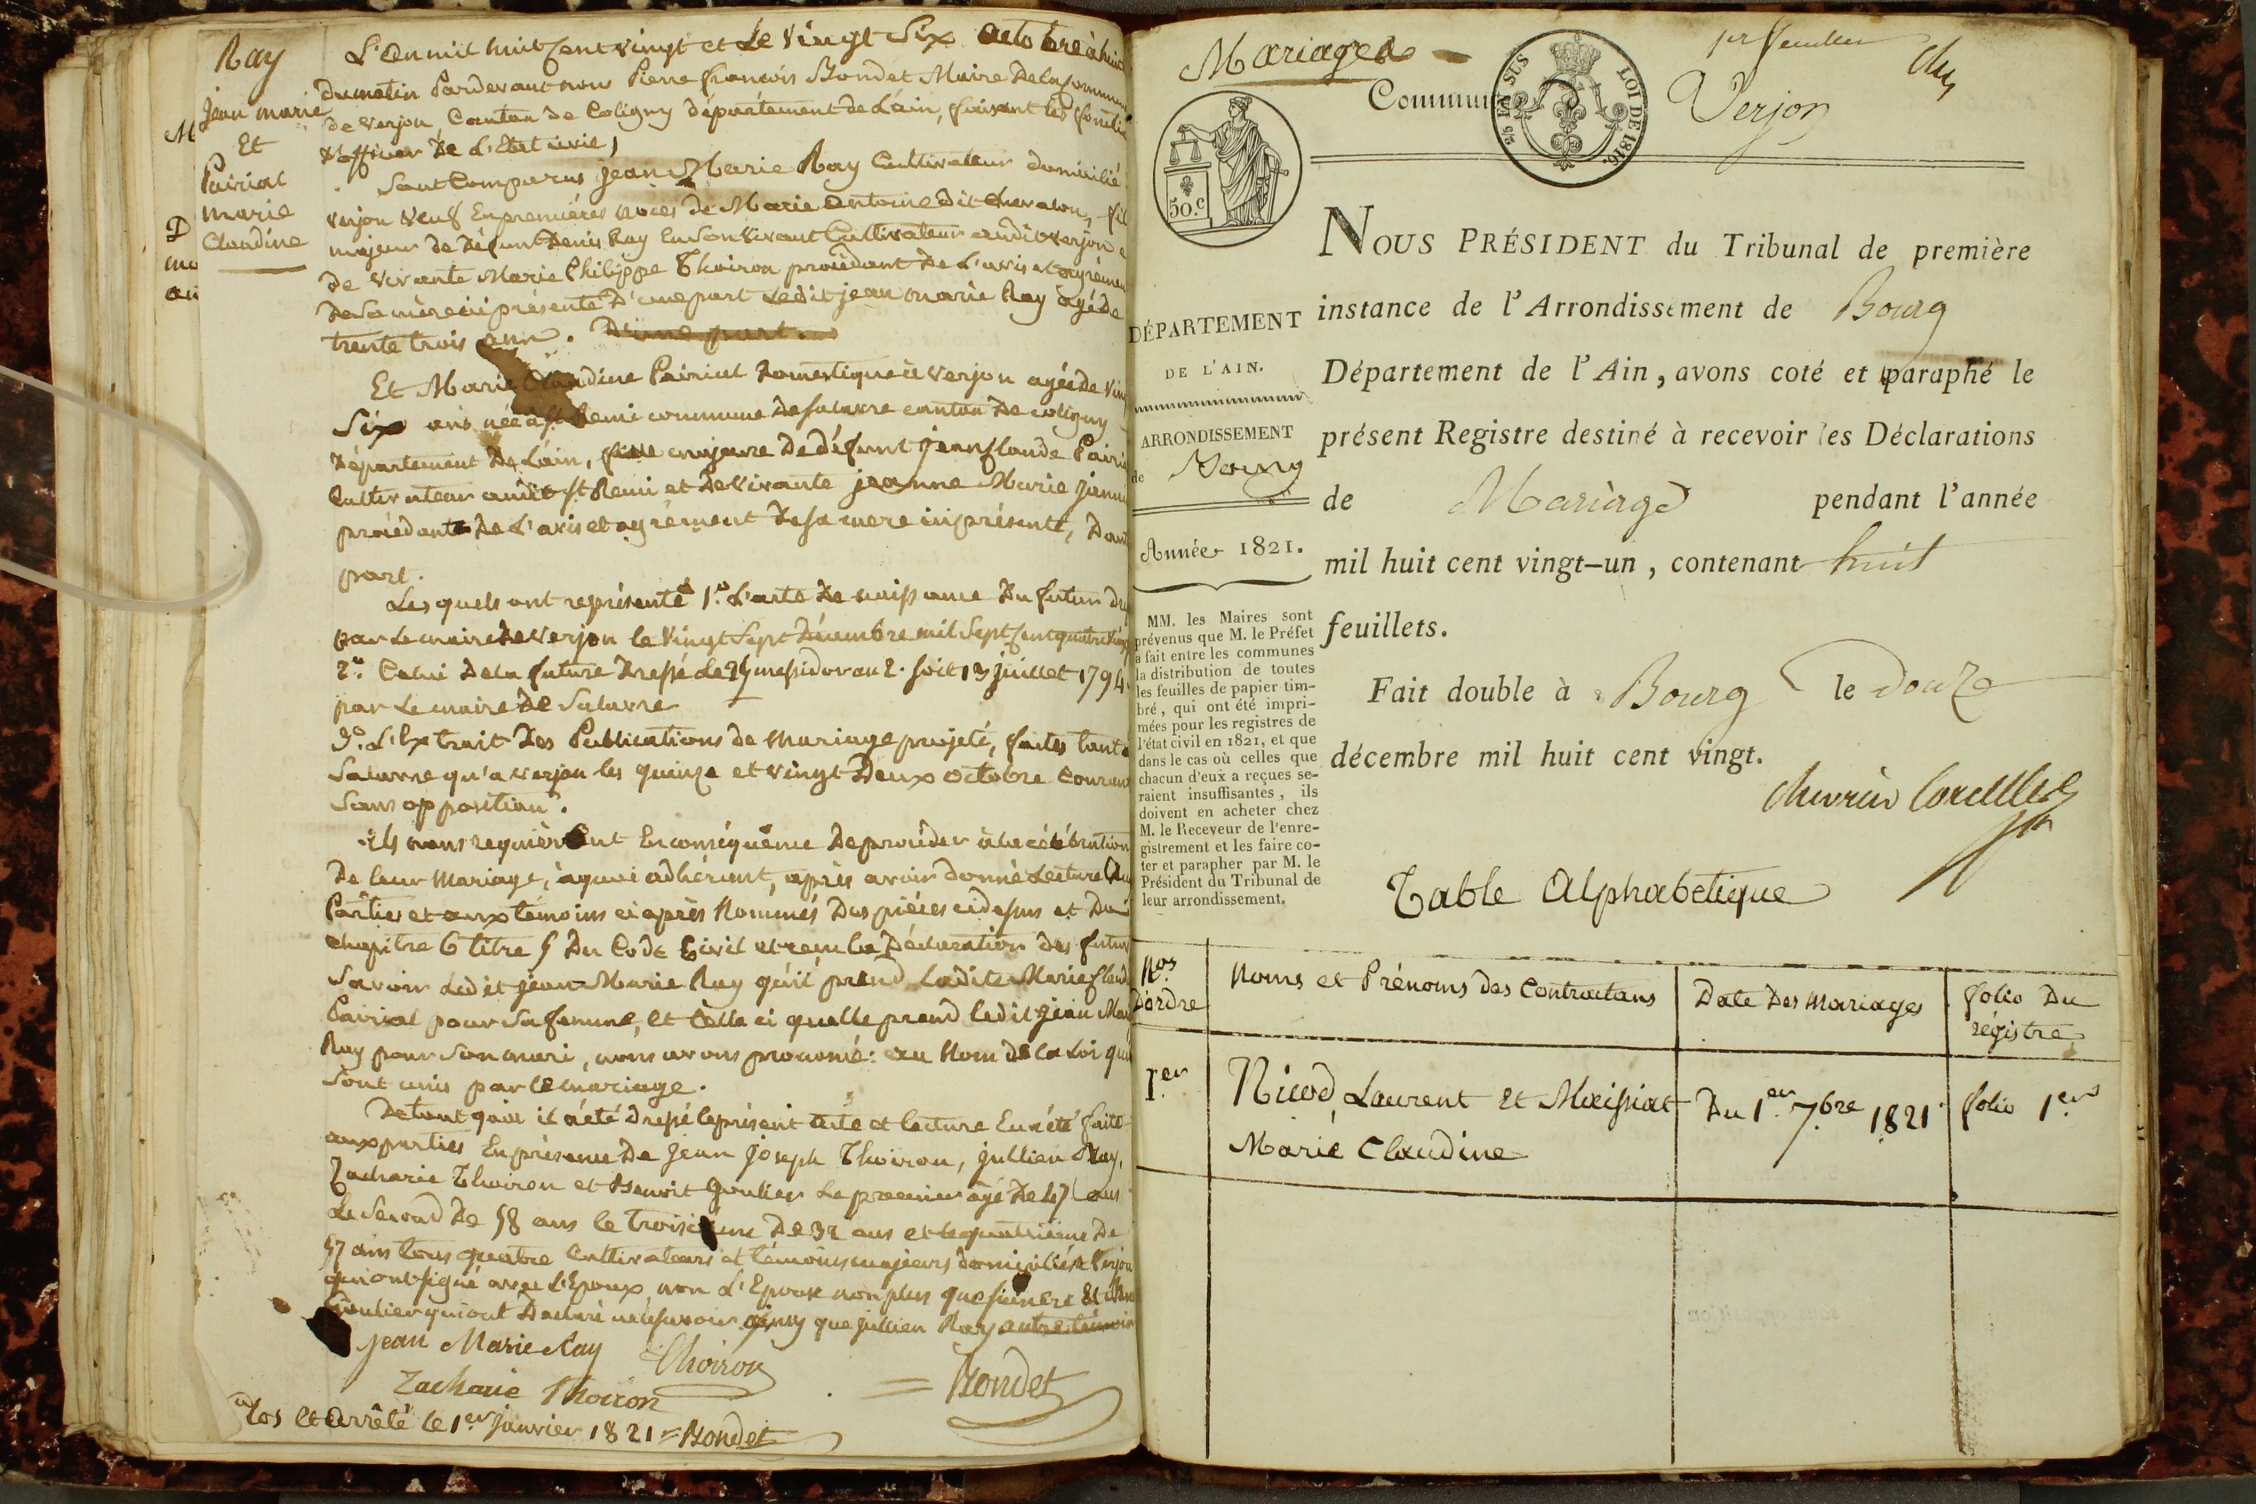 Ray
Jean marie
Et
Pairial
marie
Claudine
L'an mil huit Cent vingt et Le Vingt Six octobre à huit
du matin Pardevant nous Pierre françois Bondet Maire De la Commune
de verjon Canton de Coligny département de L'ain, faisant les fonctions
D'officier De L'Etat civil,
Sont Comparus jean Marie Ray Cultivateur domicilié
verjon veuf En premières noces de Marie Antoine Dit Chevalon, fils
majeur de Défunt Denis Ray En son Vivant Cultivateur audit verjon
de vivante Marie Philippe Thoiron procédant De L'avis et agrément
De Sa mère ici présente D'une part Ledit jean marie Ray âgé de
trente trois ans. D'une part.
Et Marie Claudine Pairial Domestique à Verjon agée de Vingt
Six ans née à St Remi commune De Salavre canton De coligny
Département De L'ain, fille majeure De défunt jean Claude Pairial
Cultivateur audit St Remi et De Vivante jeanne Marie
procédante De L'avis et agrément De Sa mere ici présente, D'autre
part.
Les quels ont représenté 1.o L'acte De naissance Du futur
par Le maire De verjon le Vingt Sept Décembre mil Sept Cent quatre Vingt
2.o Celui De la future Dressé Le 25 messidor an 2. soit 13 juillet 1794.
par Le maire De Salavre
3.o L'Extrait Des Publications de mariage projeté, faites tant à
Salavre qu'a verjon les quinze et vingt Deux octobre Courant
Sans opposition.
Ils nous requièrent En conséquence De procéder à la célébration
De leur Mariage, à quoi adhérant, après avoir donné Lecture Aux
Parties et aux témoins ci après Nommés Des pièces ci dessus et Du
chapitre 6 titre 5 Du Code Civil et reçu la Déclaration des futurs
Savoir Ledit jean Marie Ray qu'il prend Ladite Marie Claudine
Pairial pour Sa femme, et Celle ci quelle prend ledit Jean Marie
Ray pour Son mari, nous avons prononcé: au Nom de la Loi qu'ils
Sont unis par le mariage.
De tout quoi il a été dressé le présent acte et lecture En a été faite
aux parties En présence De Jean Joseph Thoiron, Jullien Ray,
Zacharie Thoiron et Benoit Goulier Le premier âgé De 47 ans
Le Second De 58 ans le troisième De 32 ans et le quatrième De
57 ans tous quatre Cultivateurs et témoins majeurs domiciliés à Verjon
qui ont signé avec L'Epoux, non L'Epouse non plus que sa mère Et
Goulier qui ont Déclaré ne le savoir ainsy que jullien Ray autre témoin
Jean Marie Ray Thoiron
Zacharie Thoiron = Bondet
Clos et Arrêté le 1er Janvier 1821 = Bondet
Mariages
1er feuillet
Commune Verjon
LOI DE 1816.
EN SUS
50.c
NOUS PRÉSIDENT du Tribunal de première
instance de l'Arrondissement de Bourg
Département de l'Ain, avons coté et paraphé le
présent Registre destiné à recevoir les Déclarations
de Mariage pendant l'année
mil huit cent vingt-un, contenant huit
feuillets.
Fait double à Bourg le Douze
décembre mil huit cent vingt.
DÉPARTEMENT
DE L'AIN.
ARRONDISSEMENT
de Bourg
Année 1821.
MM. les Maires sont
prévenus que M. le Préfet
a fait entre les communes
la distribution de toutes
les feuilles de papier tim-
bré, qui ont été impri-
mées pour les registres de
l'état civil en 1821, et que
dans le cas où celles que
chacun d'eux a reçues se-
raient insuffisantes, ils
doivent en acheter chez
M. le Receveur de l'enre-
gistrement et les faire co-
ter et parapher par M. le
Président du Tribunal de
leur arrondissement.
Table Alphabetique
Nos D'ordre | Noms et Prénoms des Contractans | Date Des Mariages | folio Du régistre
1er | Nicod Laurent Et Maissiat Marie Claudine | Du 1er 7bre 1821 | folio 1er